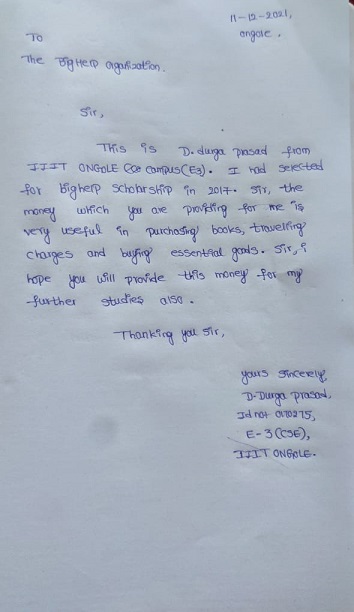 11-12-2021,
ongole.
To
The BigHelp organisation.
Sir,
This is D.durga prasad from
IIIT ONGOLE campus(E3). I had selected
for bighelp scholarship in 2017. Sir, the
money which you are providing for me is
very useful in purchasing books, travelling
charges and buying essential goods. Sir, i
hope you will provide this money for my
further studies also.
Thanking you sir,
yours sincerely,
D-Durga prasad,
E-3(CSE),
IIIT ONGOLE.